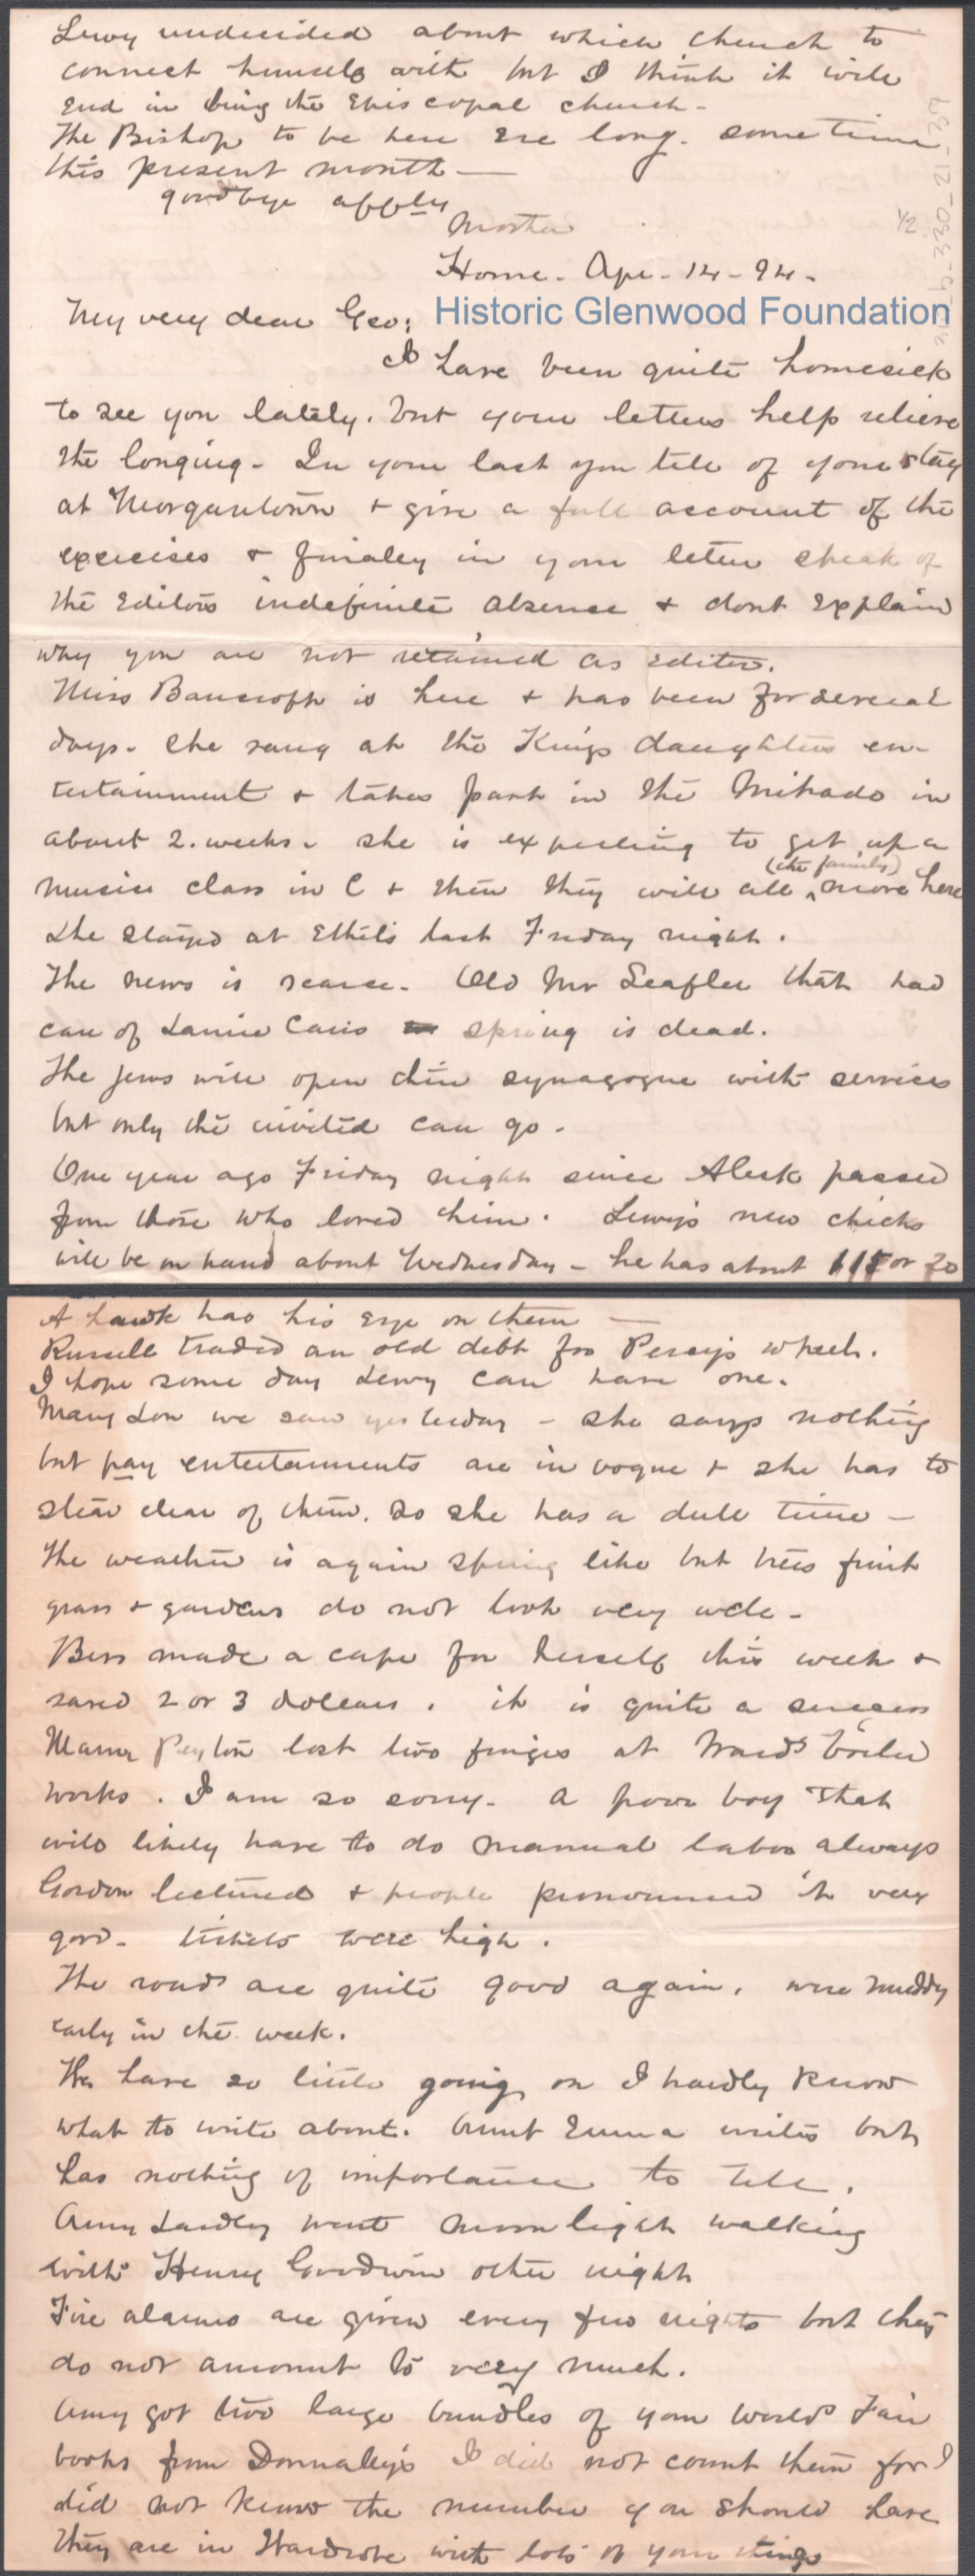 Lewy undecided about which church to
connect himself with but I think it will
end in being the Episcopal church -
The Bishop to be here ere long. sometime
this present month —
goodbye affly
Mother
1/2
Home - Apr - 14 - 94 -
My very dear Geo:
Historic Glenwood Foundation
I have been quite homesick
to see you lately. but your letters help relieve
the longing - In your last you tell of your stay
at Morgantown + give a full account of the
exercises + finaley in your letter speak of
the Editors indefinite absence + dont explain
why you are not retained as editor.
Miss Bancroft is here + has been for several
days - She sang at the Kings daughters en-
tertainment + takes part in the Mikado in
about 2. weeks. she is expecting to get up a
music class in C + then they will all (the family) move here
She stayed at Ethels last Friday night.
The news is scarce. Old Mr that had
care of spring is dead.
The Jews will open their synagogue with services
but only the invited can go -
One year ago Friday night since Aleck passed
from those who loved him. Lewys new chicks
will be on hand about Wednesday - he has about 115 or 20
A hawk has his eye on them —
Russell traded an old debt for Percys wheel.
I hope some day Lewy can have one.
Mary Lou we saw yesterday - she says nothing
but pay entertainments are in vogue + she has to
stear clear of them. So she has a dull time -
The weather is again spring like but trees fruit
grass + gardens do not look very well -
Bess made a cape for herself this week +
saved 2 or 3 dollars. it is quite a success
Peyton lost two fingers at Wards boiler
works. I am so sorry - a poor boy that
will likely have to do manual labor always
Gordon lectured + people pronounced it very
good - tickets were high.
The roads are quite good again. were muddy
early in the week.
We have so little going on I hardly know
what to write about. Aunt Emma writes but
has nothing of importance to tell.
Amy went moonlight walking
with Henry Goodwin other night
Fire alarms are given every few nights but they
do not amount to very much.
Amy got two large bundles of your Worlds Fair
books from Donnaleys I did not count them for I
did not know the number you should have
They are in Wardrobe with lots of your things